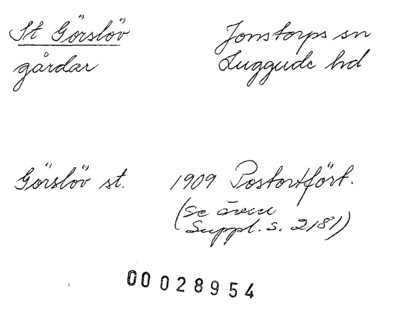 St Görslöv Jonstorps sn
gårdar Luggude hd
Görslöv st. 1909 Postortfört.
(se även
Suppl. s. 2181)
00028954